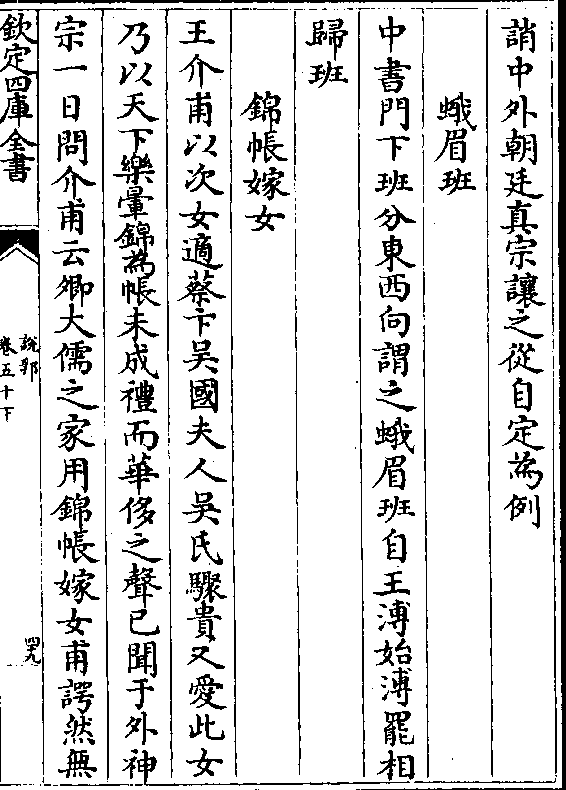 誚中外朝廷真宗讓之從自定為例
蛾眉班
中書門下班分東西向謂之蛾眉班自王溥始溥罷相
歸班
錦帳嫁女
王介甫以次女適蔡卞吳國夫人吳氏驟貴又愛此女
乃以天下樂暈錦為帳未成禮而華侈之聲已聞于外神
宗一日問介甫云卿大儒之家用錦帳嫁女甫諤然無
欽定四庫全書
說郛
卷五十下
四九